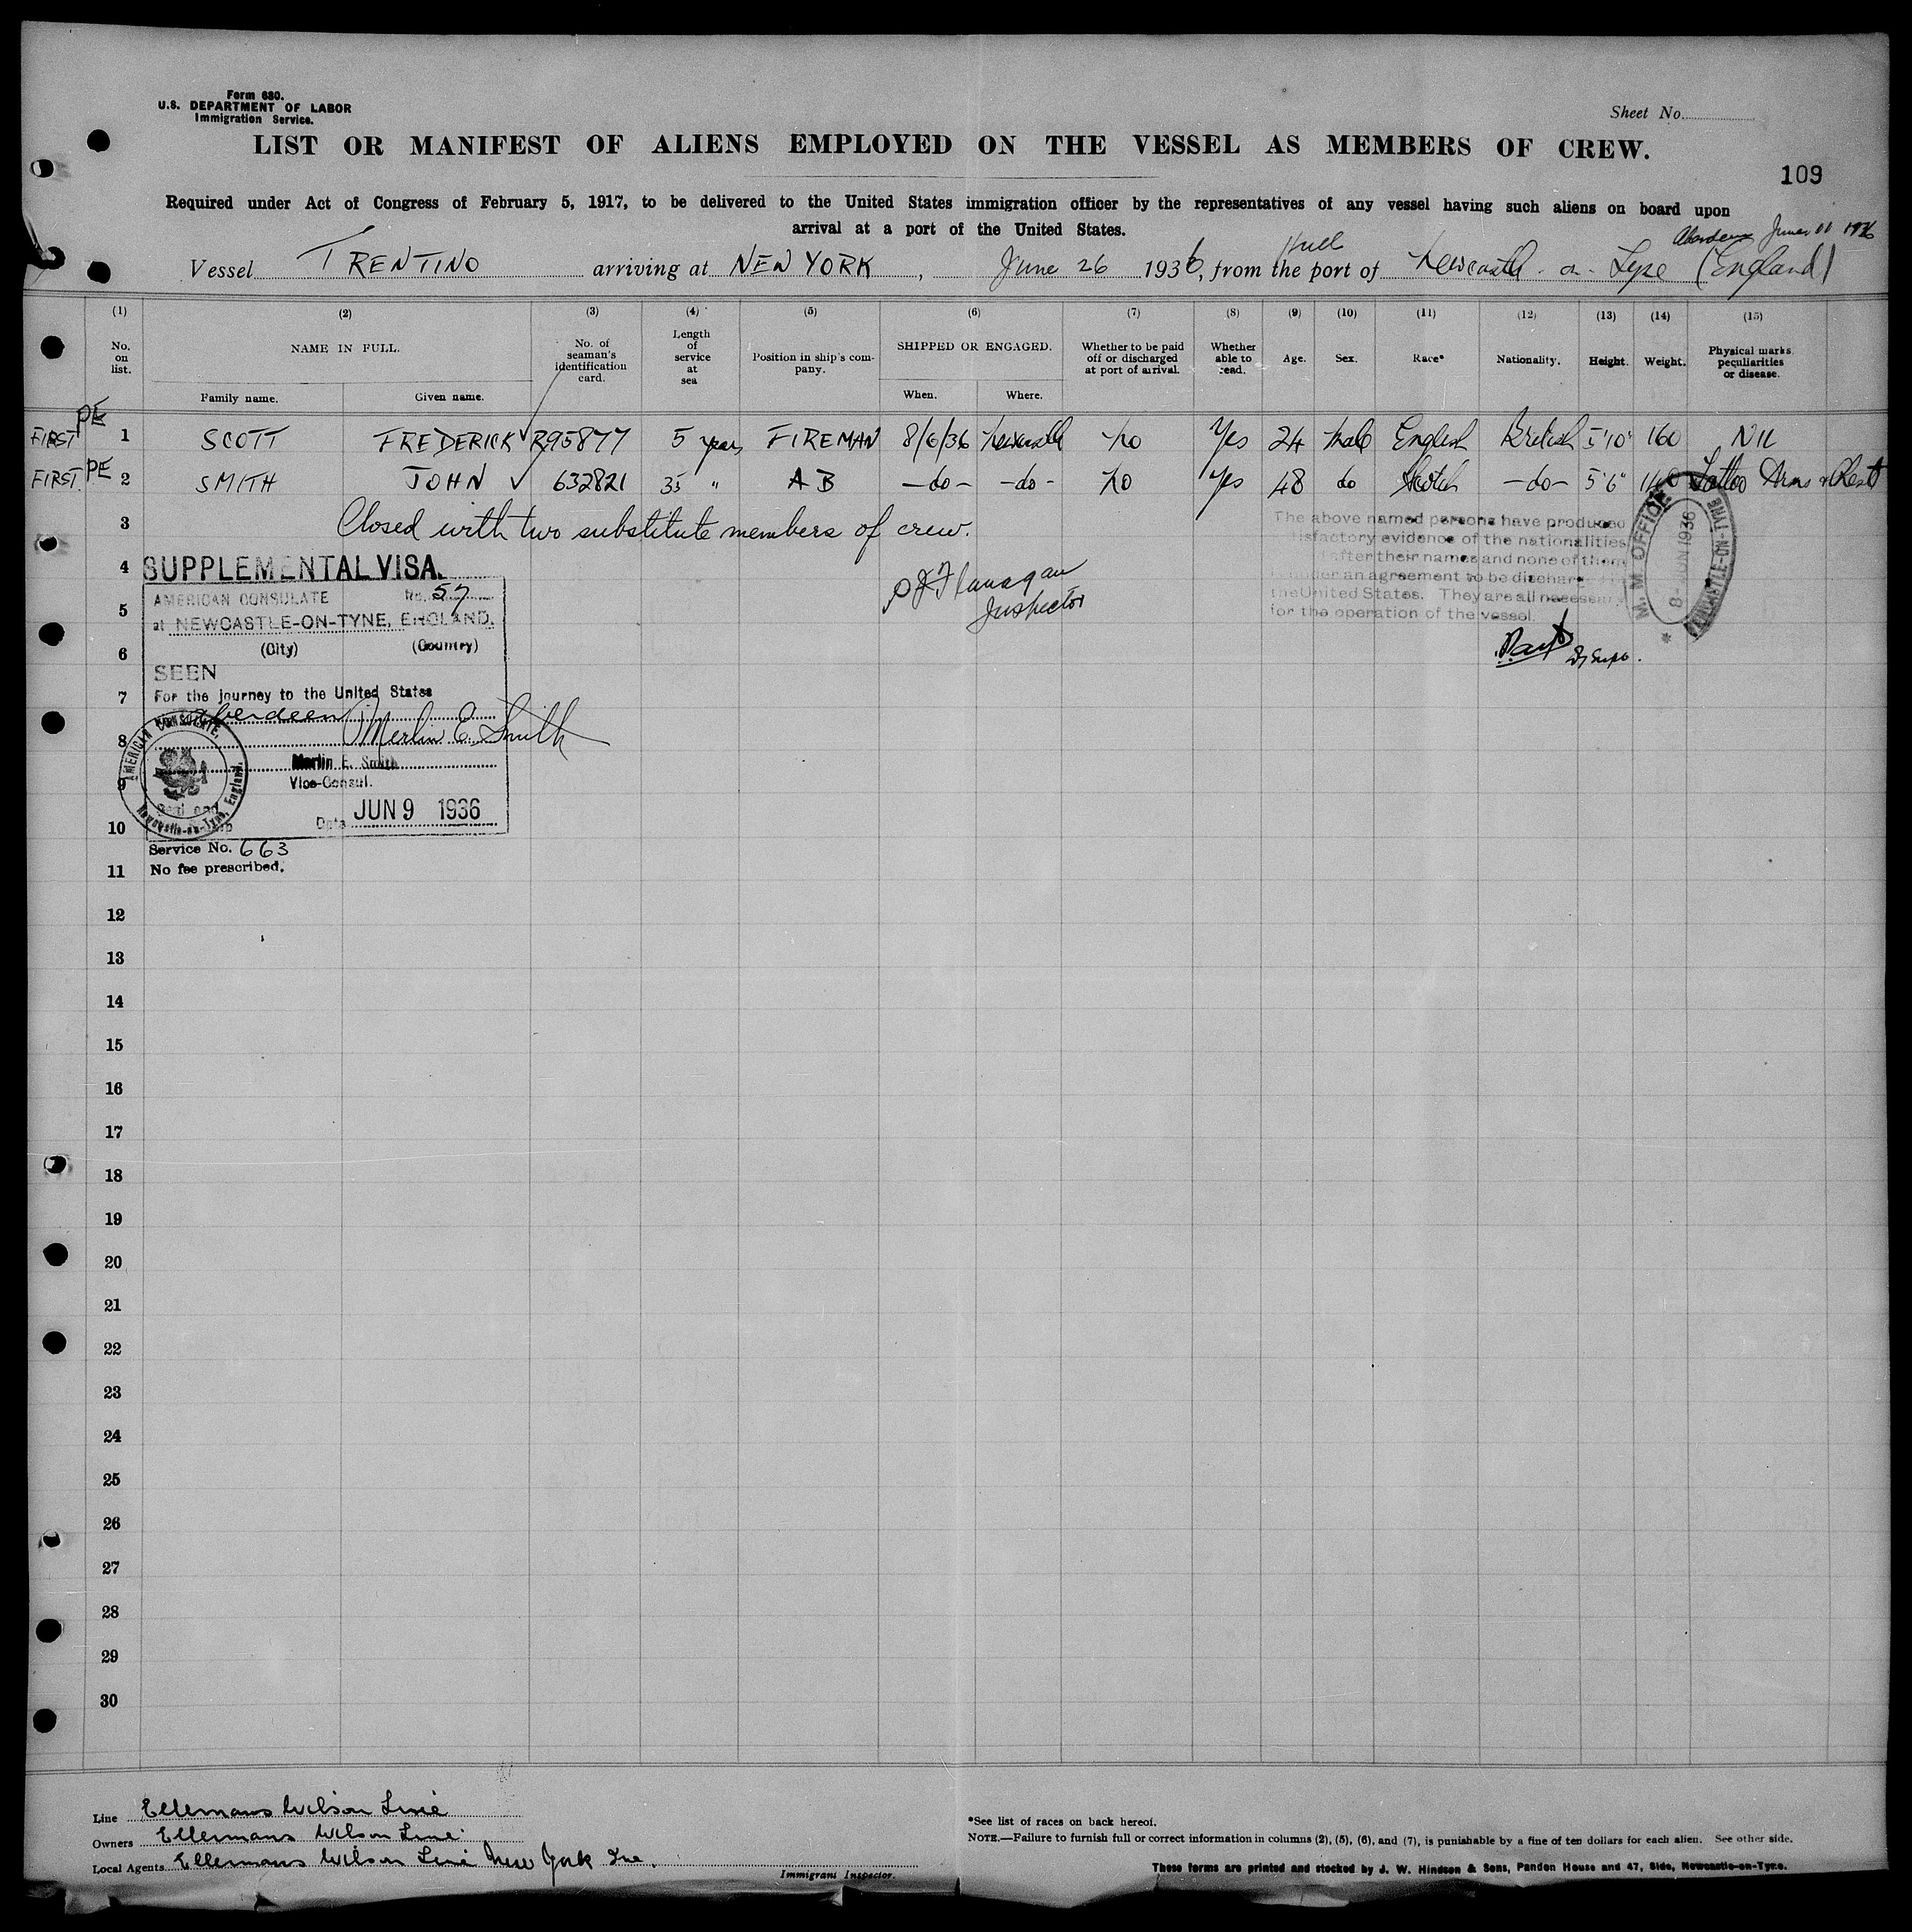 Form 680.
U.S. DEPARTMENT OF LABOR
Immigration Service.
Sheet No.
LIST OR MANIFEST OF ALIENS EMPLOYED ON THE VESSEL AS MEMBERS OF CREW.
109
Required under Act of Congress of February 5, 1917, to be delivered to the United States immigration officer by the representatives of any vessel having such aliens on board upon
arrival at a port of the United States.
Aberdeen June 11 1936
Hull
Vessel TRENTINO arriving at NEW YORK, June 26 1936, from the port of Newcastle-on-Tyne (England)
(1) (2) (3) (4) (5) (6) (7) (8) (9) (10) (11) (12) (13) (14) (15)
No. on list. NAME IN FULL. Family name. Given name. No. of seaman's identification card. Length of service at sea Position in ship's company. SHIPPED OR ENGAGED. When. Where. Whether to be paid off or discharged at port of arrival. Whether able to read. Age. Sex. Race* Nationality. Height. Weight. Physical marks, peculiarities or disease.
FIRST PE 1 SCOTT FREDERICK ✓ R95877 5 years FIREMAN 8/6/36 Newcastle No Yes 24 Male English British 5'10" 160 Nil
FIRST PE 2 SMITH JOHN ✓ 632821 35 " AB -do- -do- No Yes 48 do Scotch -do- 5'6" 140 Tattoo Arms & Chest
3 Closed with two substitute members of crew.
P J Flanagan
Inspector
The above named persons have produced
satisfactory evidence of the nationalities
after their names and none of them
under an agreement to be discharged
the United States. They are all necessary
for the operation of the vessel.
M. M. OFFICE
8 - JUN 1936
NEWCASTLE-ON-TYNE
4 SUPPLEMENTAL VISA.
AMERICAN CONSULATE No. 57
5
at NEWCASTLE-ON-TYNE, ENGLAND.
(City) (Country)
6
SEEN
7 For the journey to the United States
Aberdeen
8 Merlin E. Smith
Merlin E. Smith
9 Vice-Consul.
AMERICAN CONSULATE,
Newcastle-on-Tyne, England.
10 Date JUN 9 1936
Service No. 663
11 No fee prescribed.
12
13
14
15
16
17
18
19
20
21
22
23
24
25
26
27
28
29
30
Line Ellermans Wilson Line
Owners Ellermans Wilson Line
Local Agents Ellermans Wilson Line New York Inc.
Immigrant Inspector.
*See list of races on back hereof.
NOTE.—Failure to furnish full or correct information in columns (2), (5), (6), and (7), is punishable by a fine of ten dollars for each alien. See other side.
These forms are printed and stocked by J. W. Hindson & Sons, Pandon House and 47, Side, Newcastle-on-Tyne.